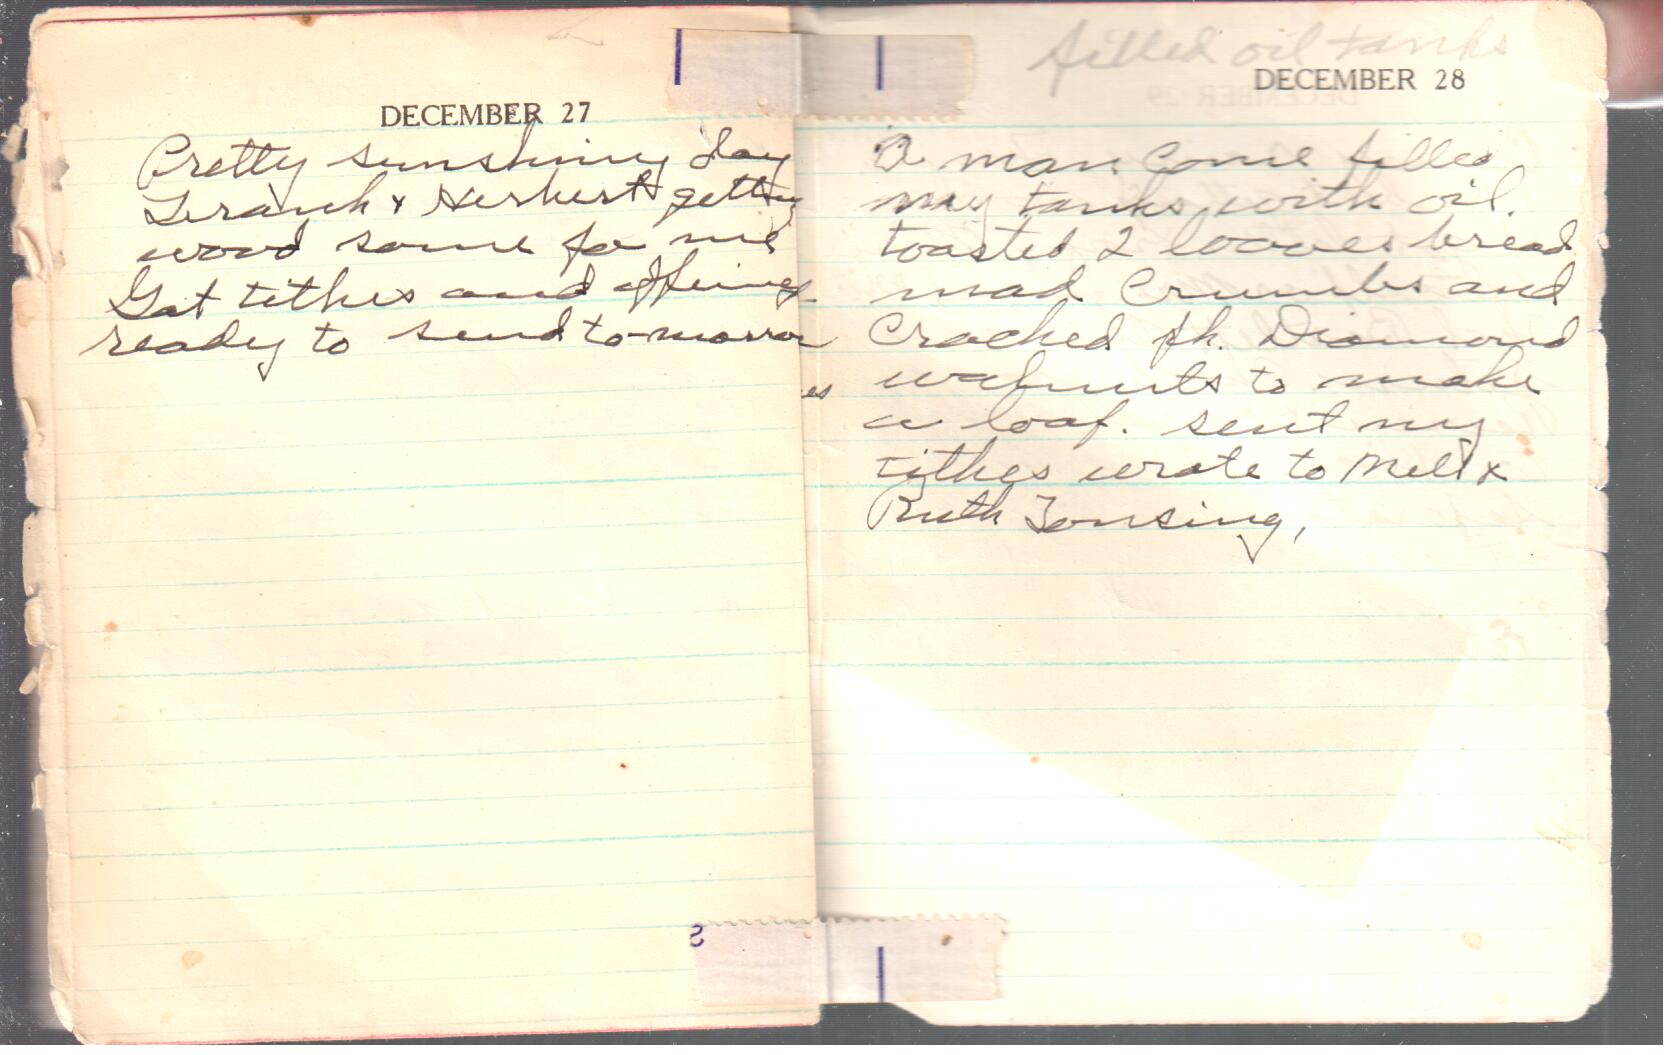 DECEMBER 27
Pretty sunshiny day
& Herbert getting
wood some for me
Got tithes and offering
ready to send to-morrow
filled oil tanks
DECEMBER 28
A man come filled
my tanks with oil.
toasted 2 looves bread
mad Crumbs and
Cracked pk. Diamond
walnuts to make
a loaf. sent my
tithes wrote to Mell &
Ruth Tonsing,